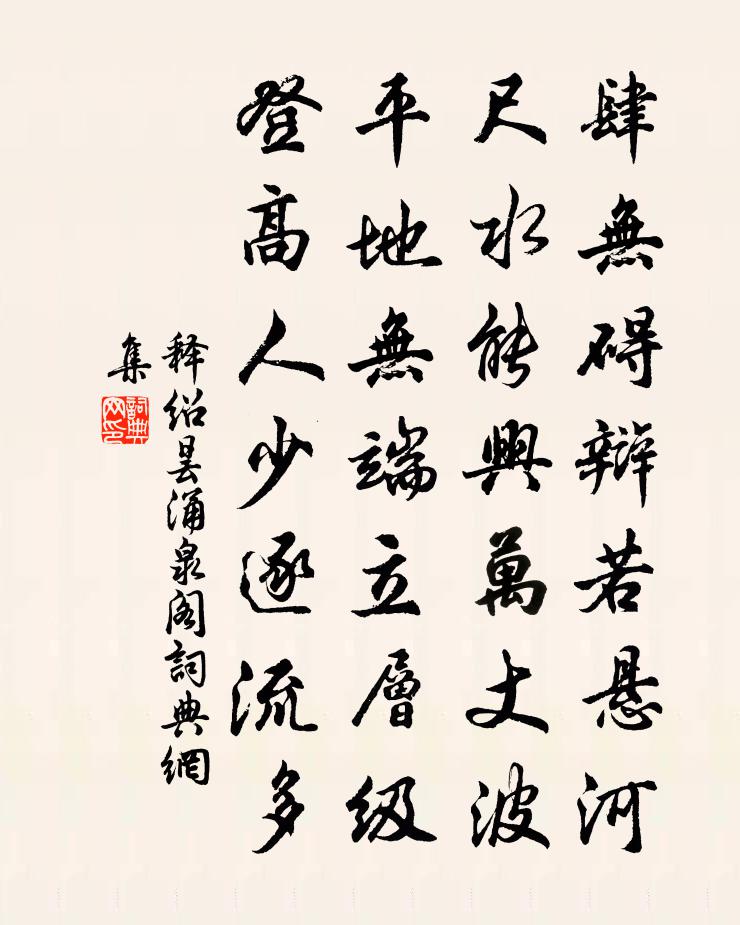 肆無碍辯若悬河
尺水能興萬丈波
平地無端立層级
登高人少逐流多
释绍昙涌泉阁詞典網
集
詞典
网印